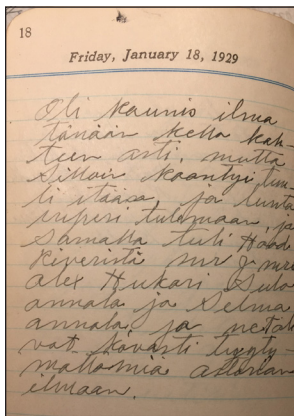 18
Friday, January 18, 1929
Oli kaunis ilma
tänään kello kah-
teen asti, mutta
silloin kääntyi tuu-
li itään, ja lunta
rupesi tulemaan, ja
samalla tuli Hood
Riveristä mr & mrs
Alex Hukari Sulo
annala ja Selma
annala, ja
vat kovasti tyyty-
mattomia
ilmaan.